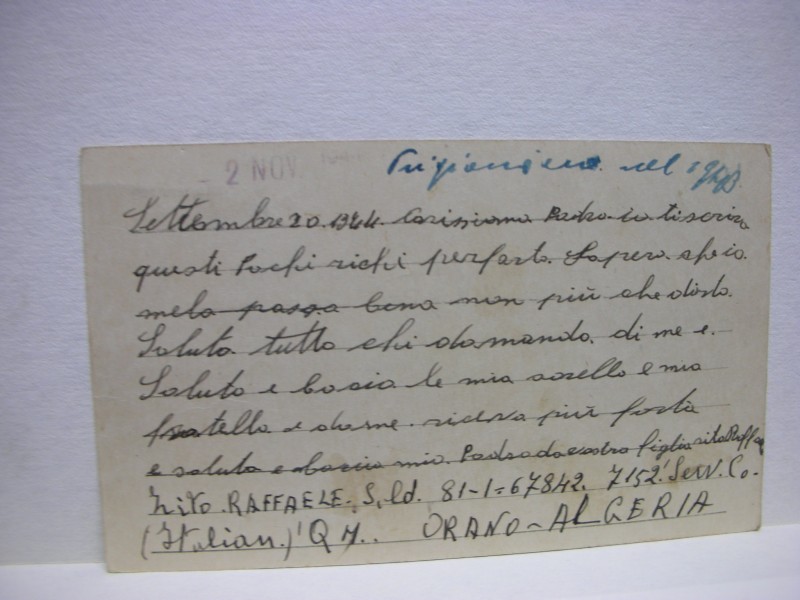 2 NOV
Prigioniero nel 1943
Settembre 20. 1944. Carissimo Padra io ti scriva
questi Pochi richi perfarta Sapera che io
mela passa bena non più che dirta.
Saluta tutto chi domanda di me e.
Saluto e bacia le mia sorello e mio
fratello e da me riceva più forta
e saluta e bacia mio Padra da vostro figlia zito Raffae
Zito RAFFAELE. Sold. 81-I=67842. 7152' Serv. Co.
(Italian.) QM. ORANO-AlGERIA